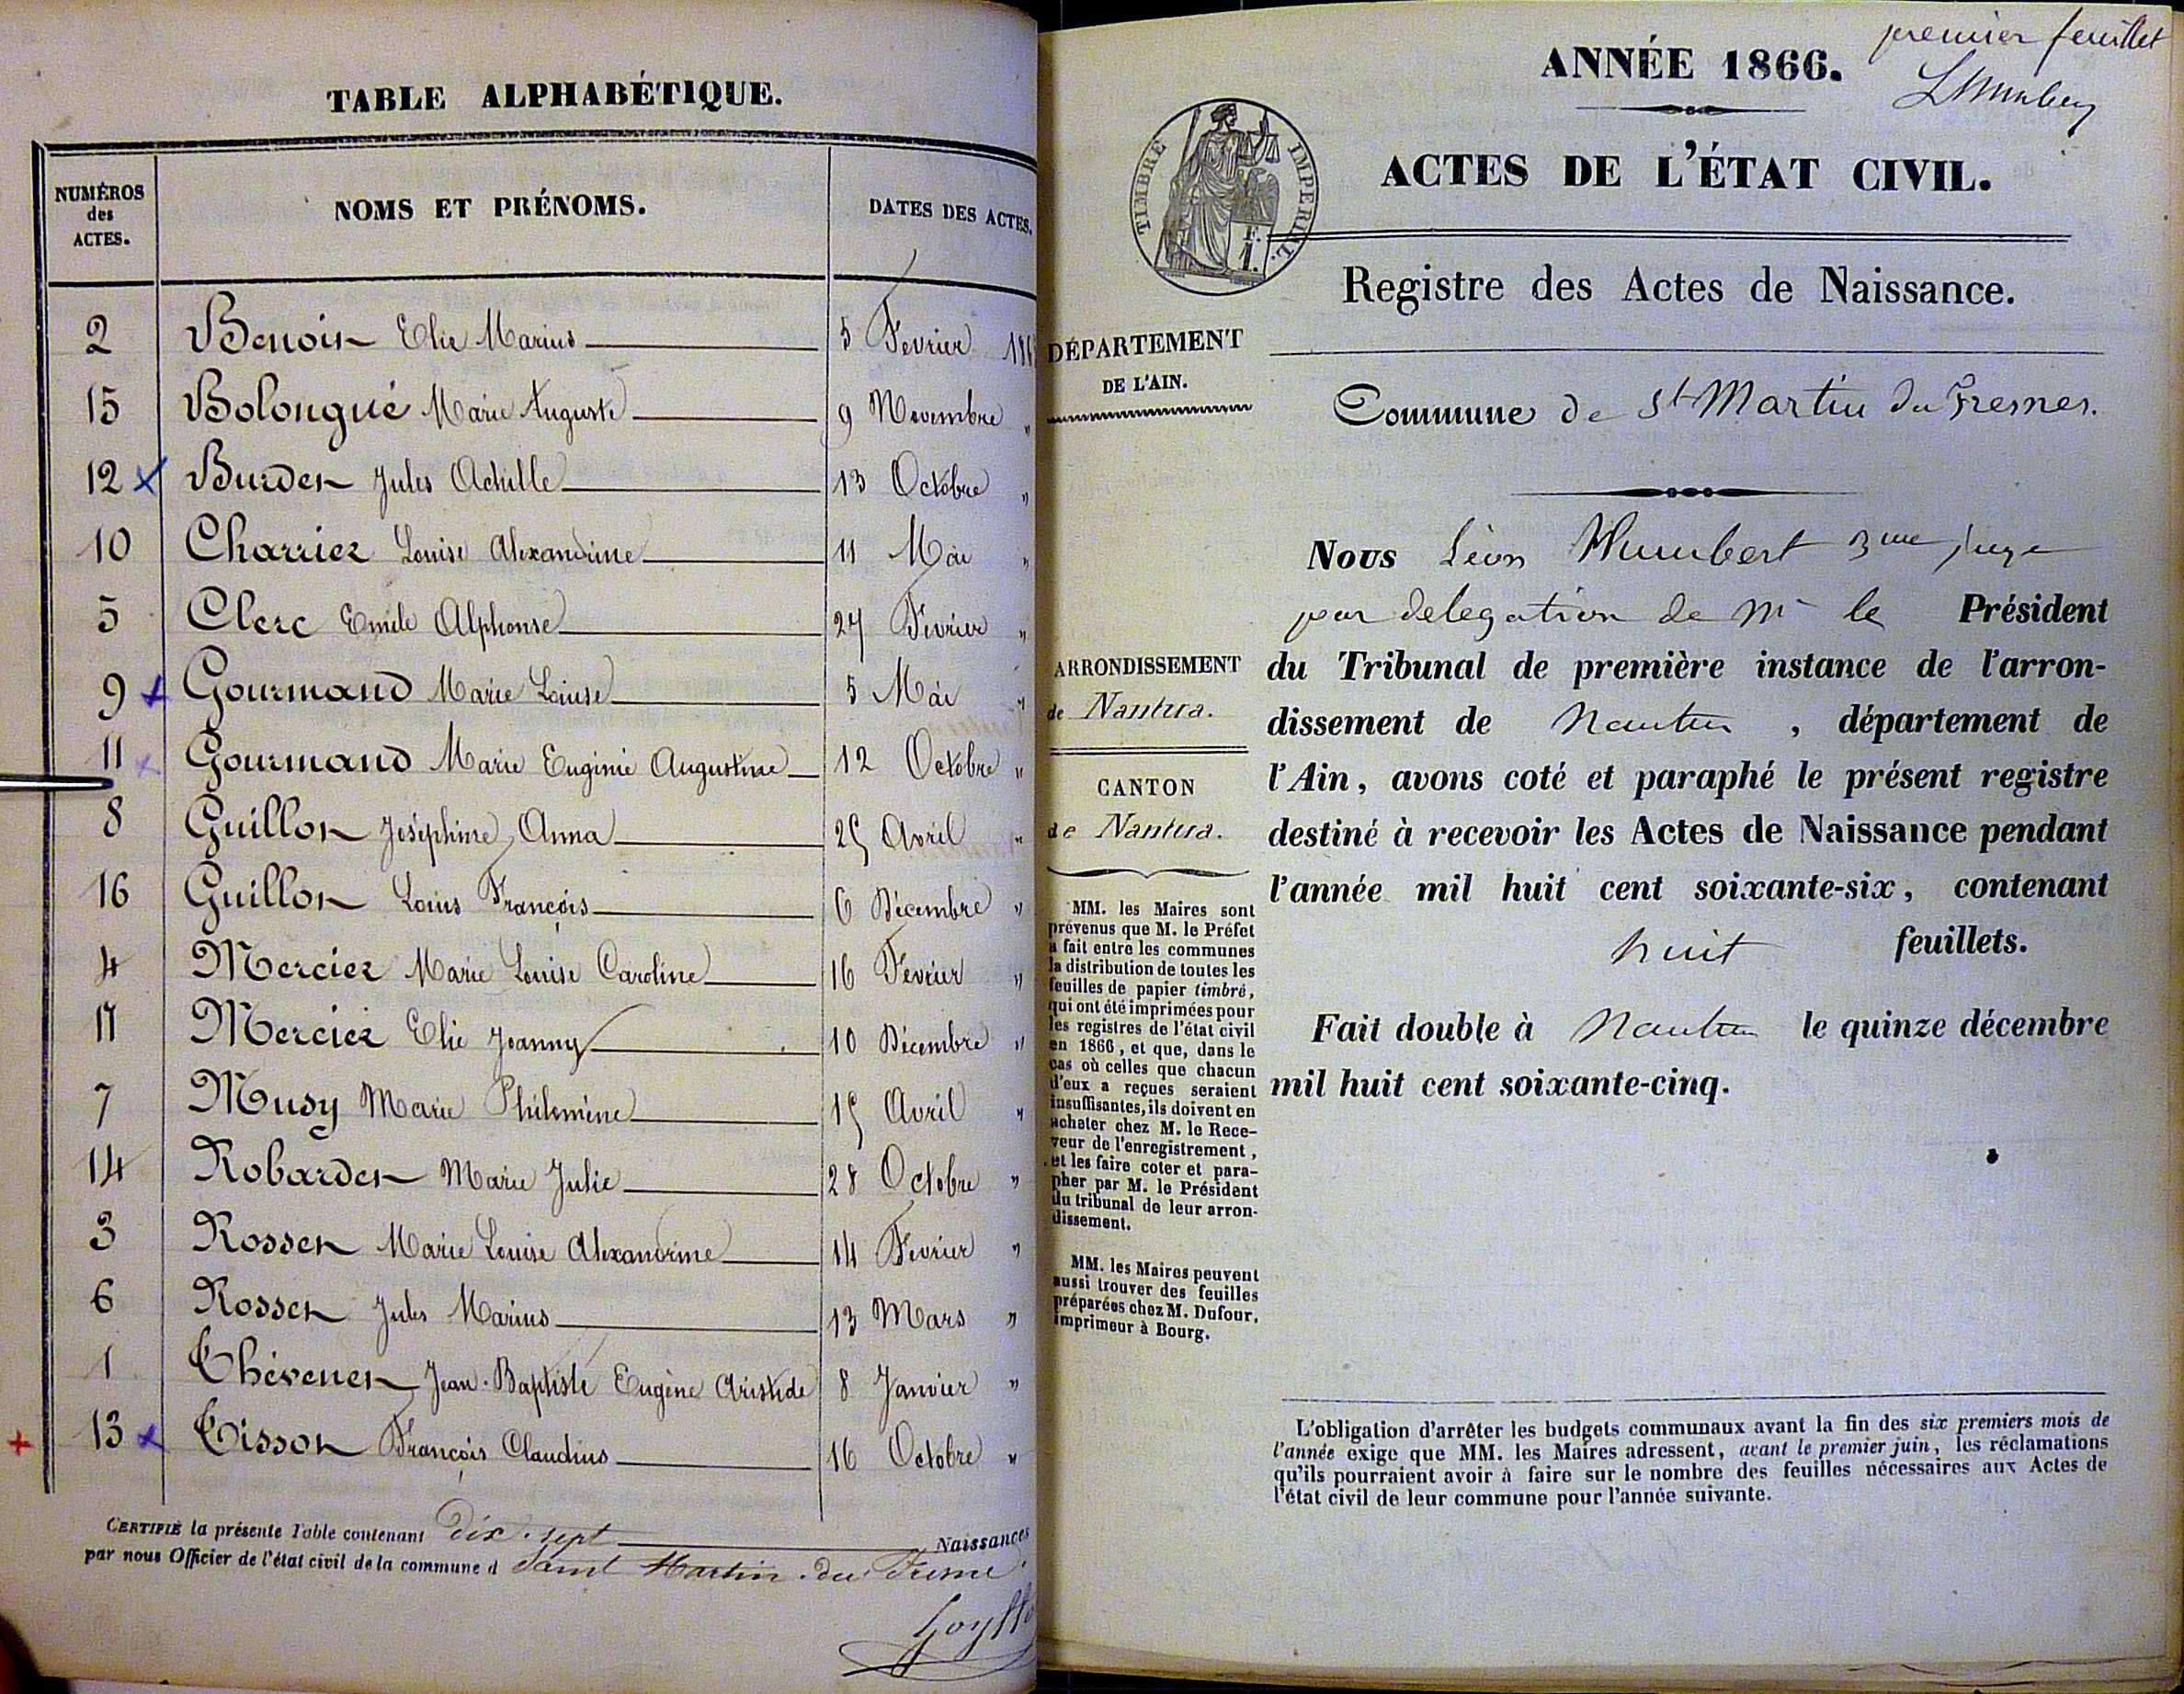 TABLE ALPHABÉTIQUE.
NUMÉROS
des
ACTES.
NOMS ET PRÉNOMS.
DATES DES ACTES.
2 Benoit Elie Marius 5 Fevrier 186
15 Bolongué Marie Auguste 9 Novembre "
12 x Burdet Jules Achille 13 Octobre "
10 Charrier Louise Alexandrine 11 Mai "
5 Clerc Emile Alphonse 27 Février "
9 x Gourmand Marie Louise 5 Mai "
11 x Gourmand Marie Euginie Augustine 12 Octobre "
8 Guillot Joséphine Anna 25 Avril "
16 Guillot Louis François 6 Décembre "
4 Mercier Marie Louise Caroline 16 Fevrier "
17 Mercier Elie Joanny 10 Décembre "
7 Musy Marie Philomène 15 Avril "
14 Robardet Marie Julie 28 Octobre "
3 Rosset Marie Louise Alexandrine 14 Fevrier "
6 Rosset Jules Marius 13 Mars "
1 Thévenet Jean-Baptiste Eugène Aristide 8 Janvier "
+ 13 x Tissot François Claudius 16 Octobre "
CERTIFIÉ la présente Table contenant dix-sept Naissances
par nous Officier de l'état civil de la commune d Saint Martin-du-Fresne
premier feuillet
ANNÉE 1866.
LHumbert
TIMBRE IMPÉRIAL.
F.
1.
ACTES DE L'ÉTAT CIVIL.
Registre des Actes de Naissance.
DÉPARTEMENT
DE L'AIN.
Commune de St Martin du Fresnes.
Nous Léon Humbert 3me juge
par delegation de Mr le Président
du Tribunal de première instance de l'arron-
dissement de Nantua, département de
l'Ain, avons coté et paraphé le présent registre
destiné à recevoir les Actes de Naissance pendant
l'année mil huit cent soixante-six, contenant
huit feuillets.
Fait double à Nantua le quinze décembre
mil huit cent soixante-cinq.
ARRONDISSEMENT
de Nantua.
CANTON
de Nantua.
MM. les Maires sont
prévenus que M. le Préfet
a fait entre les communes
la distribution de toutes les
feuilles de papier timbré,
qui ont été imprimées pour
les registres de l'état civil
en 1866, et que, dans le
cas où celles que chacun
d'eux a reçues seraient
insuffisantes, ils doivent en
acheter chez M. le Rece-
veur de l'enregistrement,
et les faire coter et para-
pher par M. le Président
du tribunal de leur arron-
dissement.
MM. les Maires peuvent
aussi trouver des feuilles
préparées chez M. Dufour,
imprimeur à Bourg.
L'obligation d'arrêter les budgets communaux avant la fin des six premiers mois de
l'année exige que MM. les Maires adressent, avant le premier juin, les réclamations
qu'ils pourraient avoir à faire sur le nombre des feuilles nécessaires aux Actes de
l'état civil de leur commune pour l'année suivante.